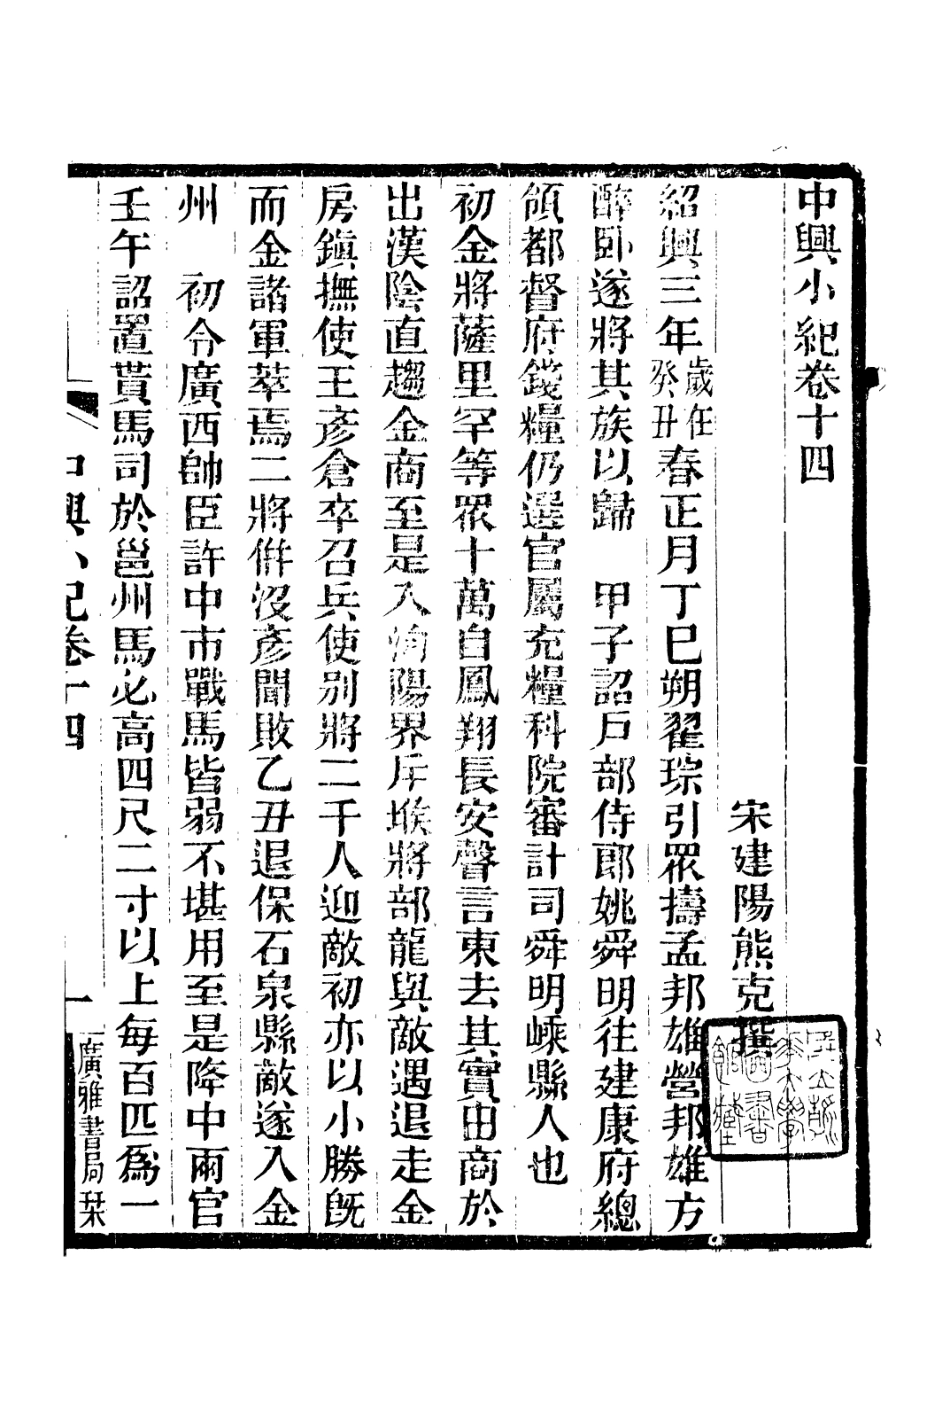 中興小紀卷十四
宋建陽熊克撰
紹興三年歲在癸丑春正月丁巳朔翟琮引眾擣孟邦雄營邦雄方
醉臥遂將其族以歸　甲子詔戶部侍郎姚舜明往建康府總
領都督府錢糧仍選官屬充糧科院審計司舜明嵊縣人也
初金將薩里罕等眾十萬自鳳翔長安聲言東去其實由商於
出漢陰直趨金商至是入洵陽界斥堠將部龍與敵遇退走金
房鎮撫使王彥倉卒召兵使別將二千人迎敵初亦以小勝旣
而金諸軍萃焉二將倂沒彥聞敗乙丑退保石泉縣敵遂入金
州　初令廣西帥臣許中市戰馬皆弱不堪用至是降中兩官
壬午詔置買馬司於邕州馬必高四尺二寸以上每百匹爲一
中興小紀卷十四
一
廣雅書局栞